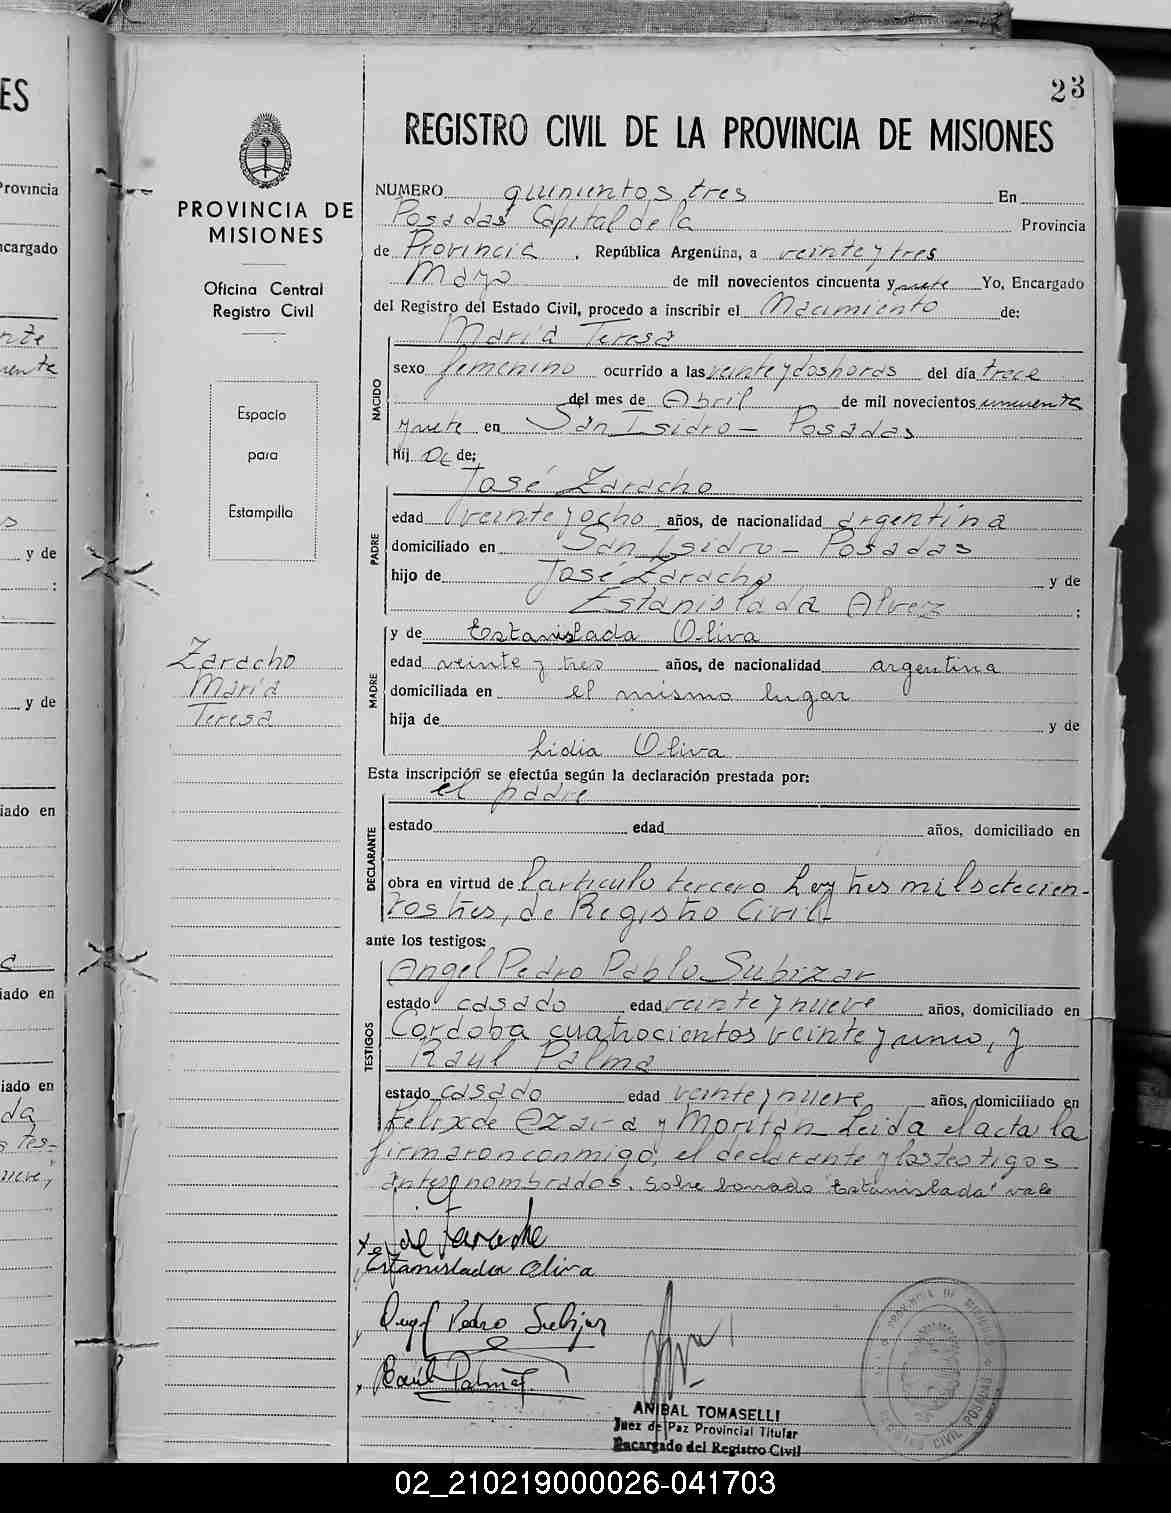 23
REGISTRO CIVIL DE LA PROVINCIA DE MISIONES
PROVINCIA DE
MISIONES
Oficina Central
Registro Civil
Espacio
para
Estampilla
Zaracho
María
Teresa
NUMERO quinientos tres En
Posadas Capital de la Provincia
de Provincia, República Argentina, a veinte y tres
Mayo de mil novecientos cincuenta y siete Yo, Encargado
del Registro del Estado Civil, procedo a inscribir el Nacimiento de:
María Teresa
NACIDO
sexo femenino ocurrido a las veinte y dos horas del día trece
del mes de Abril de mil novecientos cincuenta
y siete en San Isidro - Posadas
hij a de:
José Zaracho
PADRE
edad veinte y ocho años, de nacionalidad argentina
domiciliado en San Isidro - Posadas
hijo de José Zaracho y de
Estanislada Alvez ;
MADRE
y de Estanislada Oliva
edad veinte y tres años, de nacionalidad argentina
domiciliada en el mismo lugar
hija de y de
Lidia Oliva
Esta inscripción se efectúa según la declaración prestada por:
el padre
DECLARANTE
estado edad años, domiciliado en
obra en virtud de l'artículo tercero Ley tres mil setecien-
tos tres, de Registro Civil-
ante los testigos:
Angel Pedro Pablo Subizar
TESTIGOS
estado casado edad veinte y nueve años, domiciliado en
Córdoba cuatrocientos veinte y uno, y
Raúl Palma
estado casado edad veinte y nueve años, domiciliado en
Félix de Azara y Moritán Leida el acta la
firmaron conmigo, el declarante y los testigos
antes nombrados. Sobre borrado "Estanislada" vale
José Zaracho
Estanislada Oliva
Angel Pedro Subizar
Raúl Palma
ANIBAL TOMASELLI
Juez de Paz Provincial Titular
Encargado del Registro Civil
ES
Provincia
ncargado
y de
y de
iado en
iado en
iado en
02_210219000026-041703